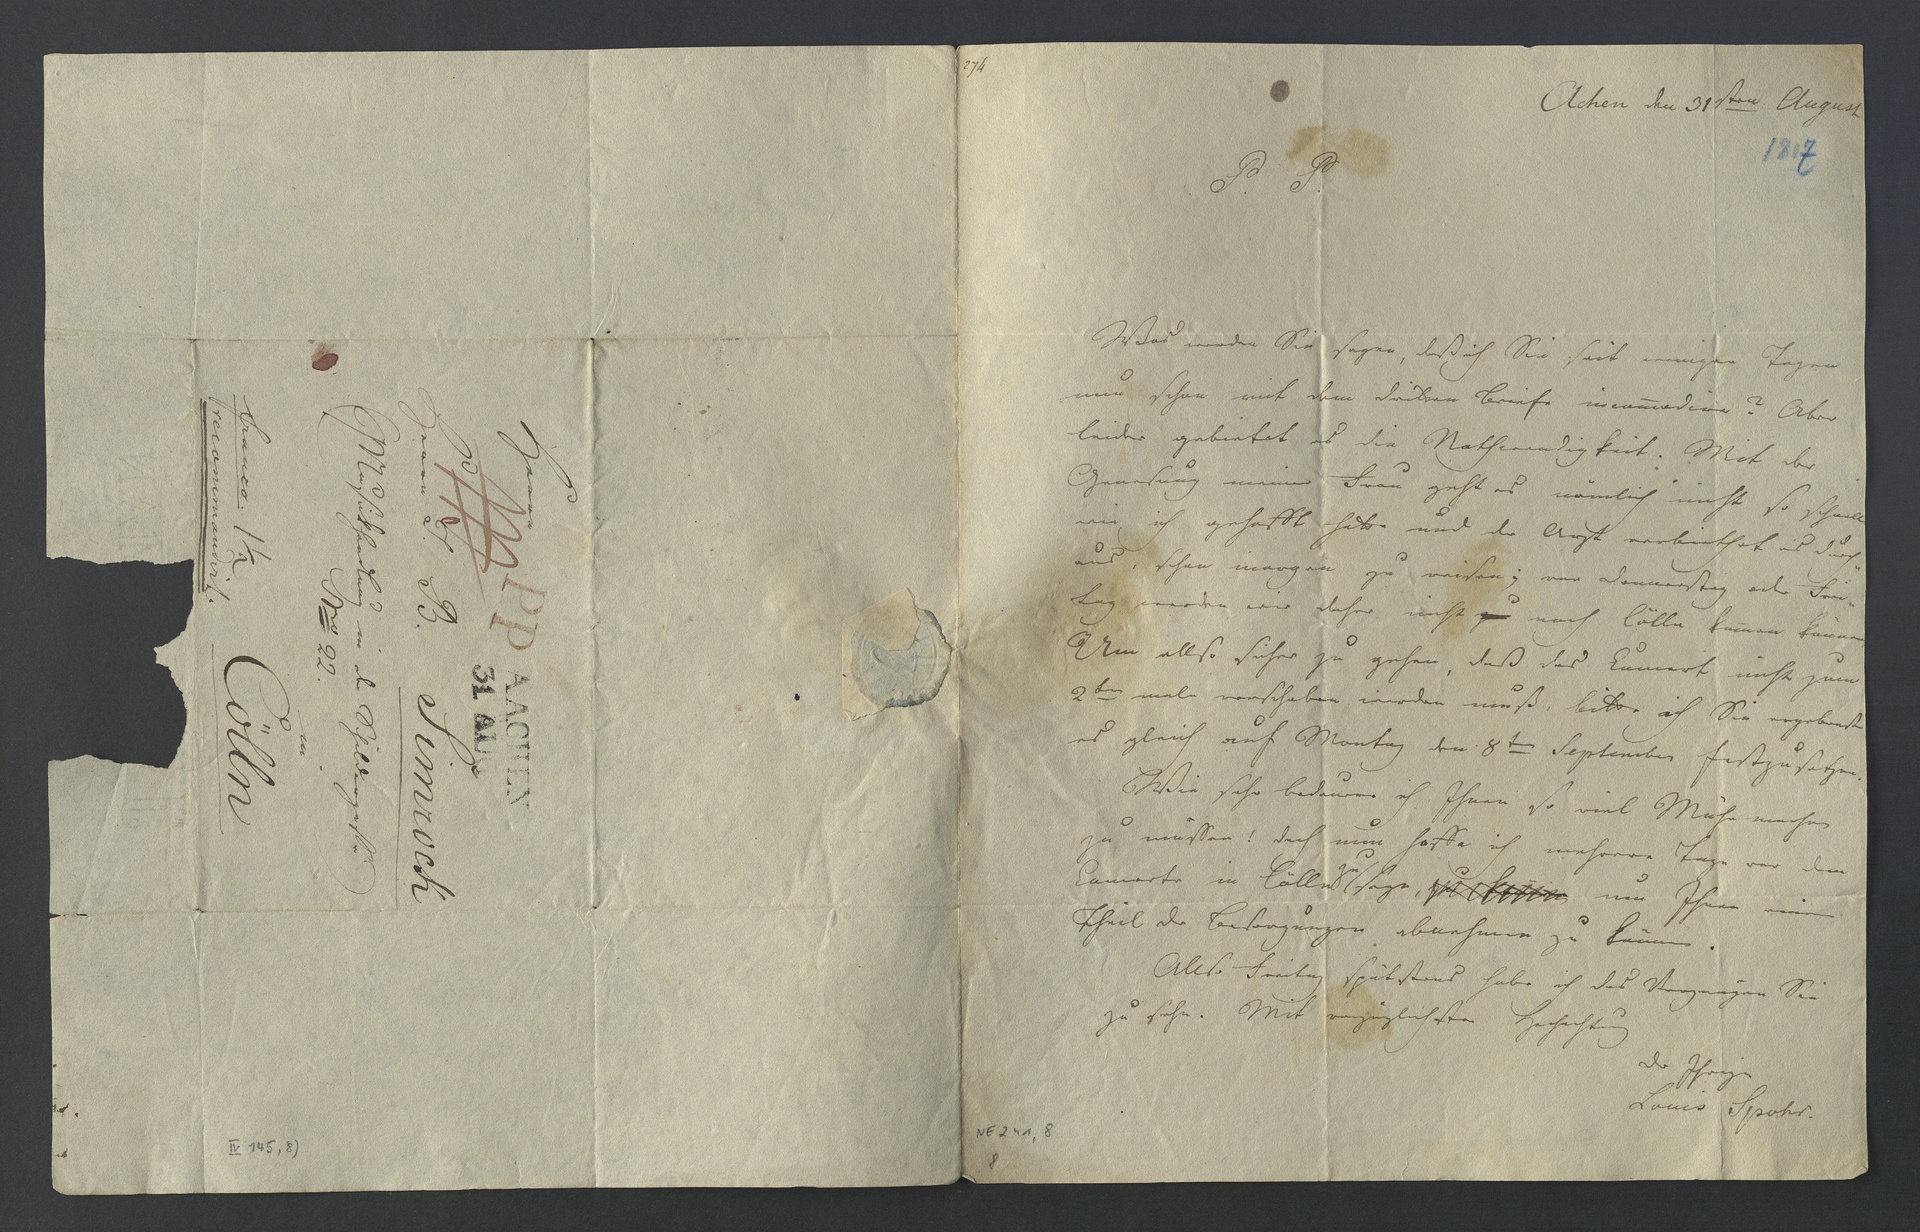 274
Achen den 31sten August
1817
P. P.
Was werden Sie sagen, daß ich Sie seit wenigen Tagen
nun schon mit dem dritten Briefe incommodire? Aber
leider gebietet es die Nothwendigkeit. Mit der
Genesung meiner Frau geht es nämlich nicht so schnell
wie ich gehofft hatte und der Arzt verbiethet es durch-
aus, schon morgen zu reisen; vor Donnerstag oder Frei-
tag werden wir daher nicht nach Cölln kommen können
Um allso sicher zu gehen, daß das Concert nicht zum
2ten male verschoben werden muß, bitte ich Sie ergebenst
es gleich auf Montag den 8ten September festzusetzen.
Wie sehr bedaure ich Ihnen so viel Mühe machen
zu müssen! doch nun hoffe ich mehrere Tage vor dem
Concerte in Cölln zu seyn, um Ihnen einen
Theil der Besorgungen abnehmen zu können.
Also Freitag spätstens habe ich das Vergnügen Sie
zu sehn. Mit vorzüglichster Hochachtung
der Ihrige
Louis Spohr.
NE 241, 8
8
Herrn
PP
AACHEN
31 AU
Herrn P. J. Simrock
Musikhandlung in d
Nro 22.
in
Cölln
franco.
recommandirt.
IV 145, 8)